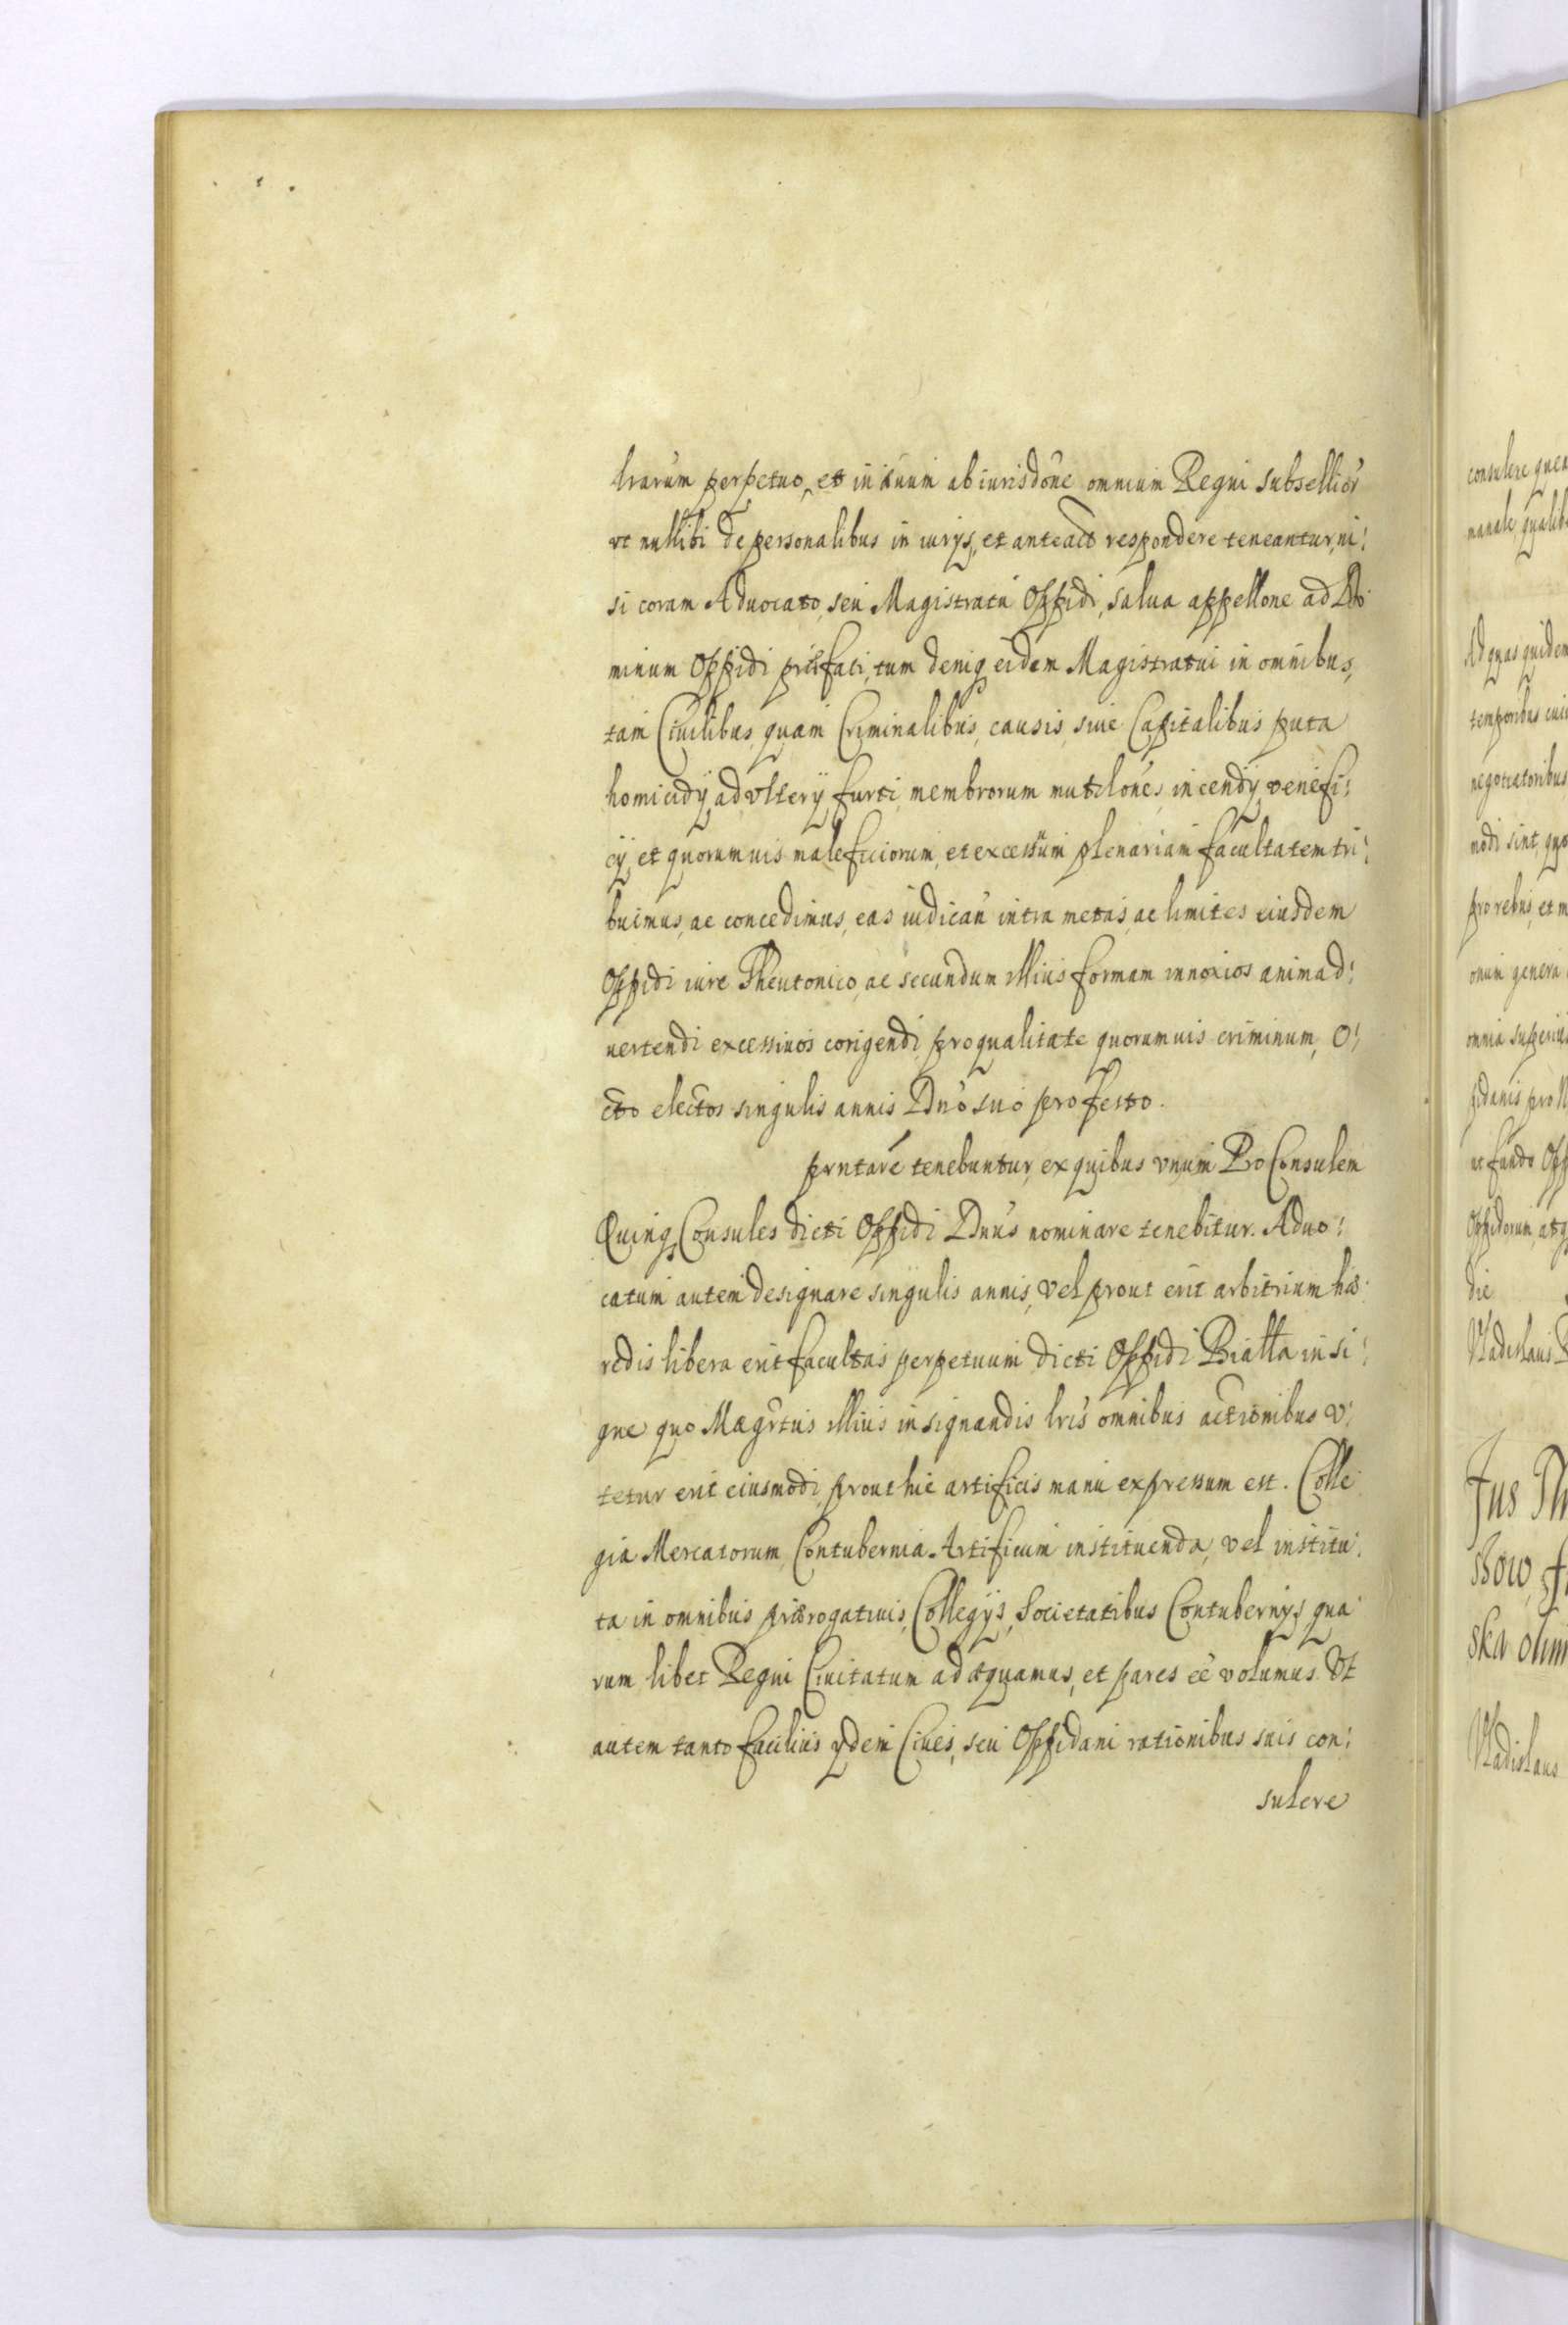 trarum perpetuo, et in æuum ab iurisdone omnium Regni subsellior
vt nullibi de personalibus iniurys, et anteact respondere teneantur, ni:
si coram Aduocato, seu Magistratu Oppidi, salua appellone ad Do:
minum Oppidi præfati, tum deniq eidem Magistratui in omnibus,
tam Ciuilibus, quam Criminalibus, causis, siue Capitalibus puta
homicidy, adultery, furti, membrorum mutilones, incendy, venefi:
cy, et quorumuis maleficiorum, et excessuum plenariam facultatem tri:
buimus, ac concedimus, eas iudican intra metas, ac limites eiusdem
Oppidi iure Theutonico, ac secundum illius formam innoxios animad:
uertendi excessiuos corigendi pro qualitate quorumuis criminum, O:
cto electos singulis annis Dno suo pro festo.
prntare tenebuntur, ex quibus vnum Pro Consulem
Quinq Consules dicti Oppidi Dnus nominare tenebitur. Aduo:
catum autem designare singulis annis, vel prout erit arbitrium hæ:
redis libera erit facultas perpetuum dicti Oppidi Bialla insi:
gne quo Magrtus illius in signandis lris omnibus actionibus v:
tetur erit eiusmodi, prout hic artificis manu expressum est. Colle:
gia Mercatorum, Contubernia Artificum instituenda, vel institu:
ta in omnibus prærogatiuis, Collegys, Societatibus Contubernys qua:
rum libet Regni Ciuitatum adæquamus, et pares eē volumus. Vt
autem tanto facilius ydem Ciues, seu Oppidani rationibus suis con:
sulere
consulere quea
manale, qualib
Ad quas quidem
temporibus cuiu
negotiatoribus
modi sint, quo
pro rebus, et m
onum genera
omnia superiu
pidanis pro
ut fundo Opp
Oppidorum, atq
die
Vladislaus
Jus Th
skow, f
ska olim
Vladislaus